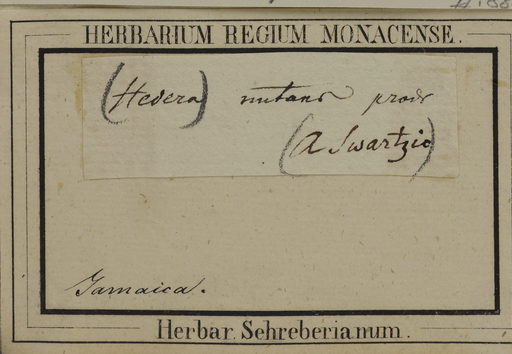 HERBARIUM REGIUM MONACENSE.
(Hedera) nutans prodr
(A Swartzio)
Jamaica.
Herbar. Schreberianum.